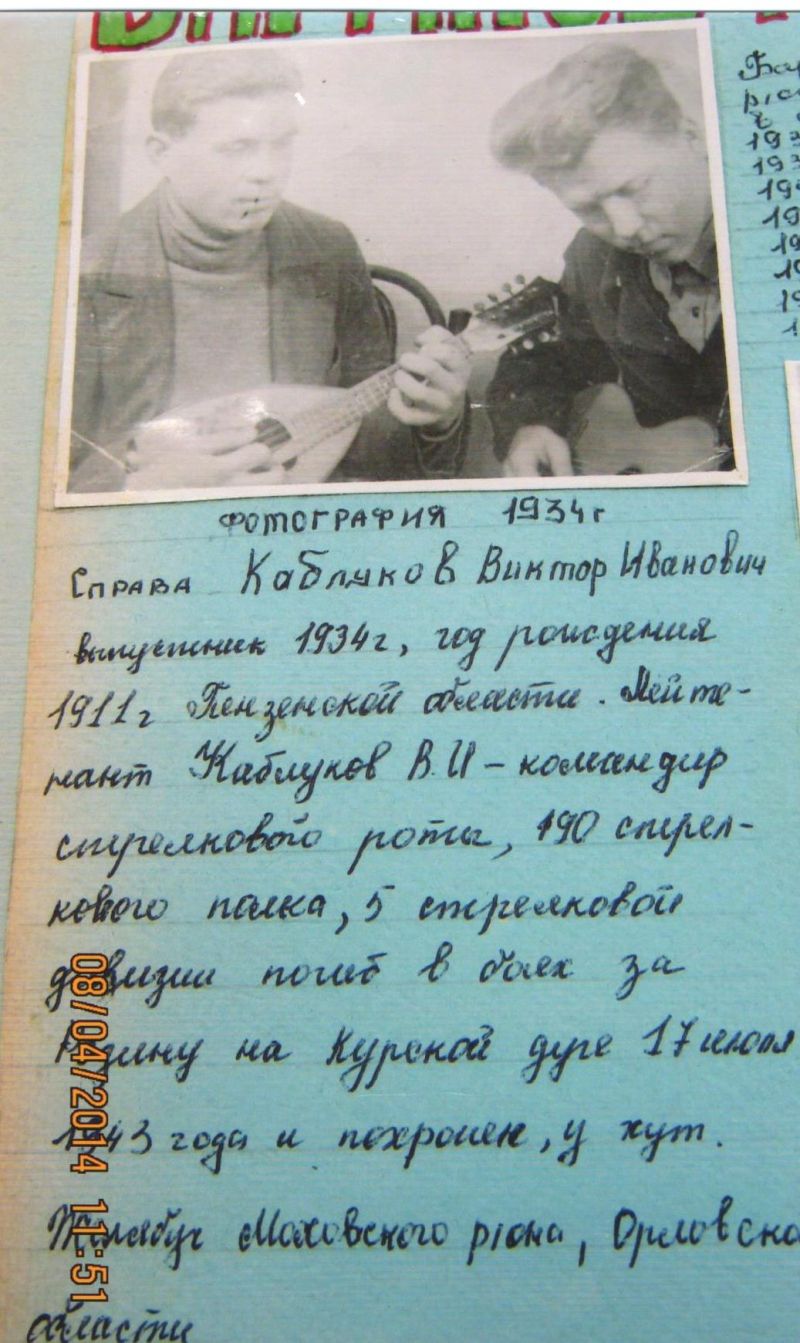 ФОТОГРАФИЯ 1934г
Справа Каблуков Виктор Иванович
выпускник 1934г, год рождения
1911г Пензенской области. Лейте-
нант Каблуков В.И – командир
стрелкового роты, 190 стрел-
кового полка, 5 стрелковой
дивизии погиб в боях за
Родину на Курской дуге 17 июля
1943 года и похронен, у хут.
Моховского р-iона, Орловско
области
08/04/2014 11:51